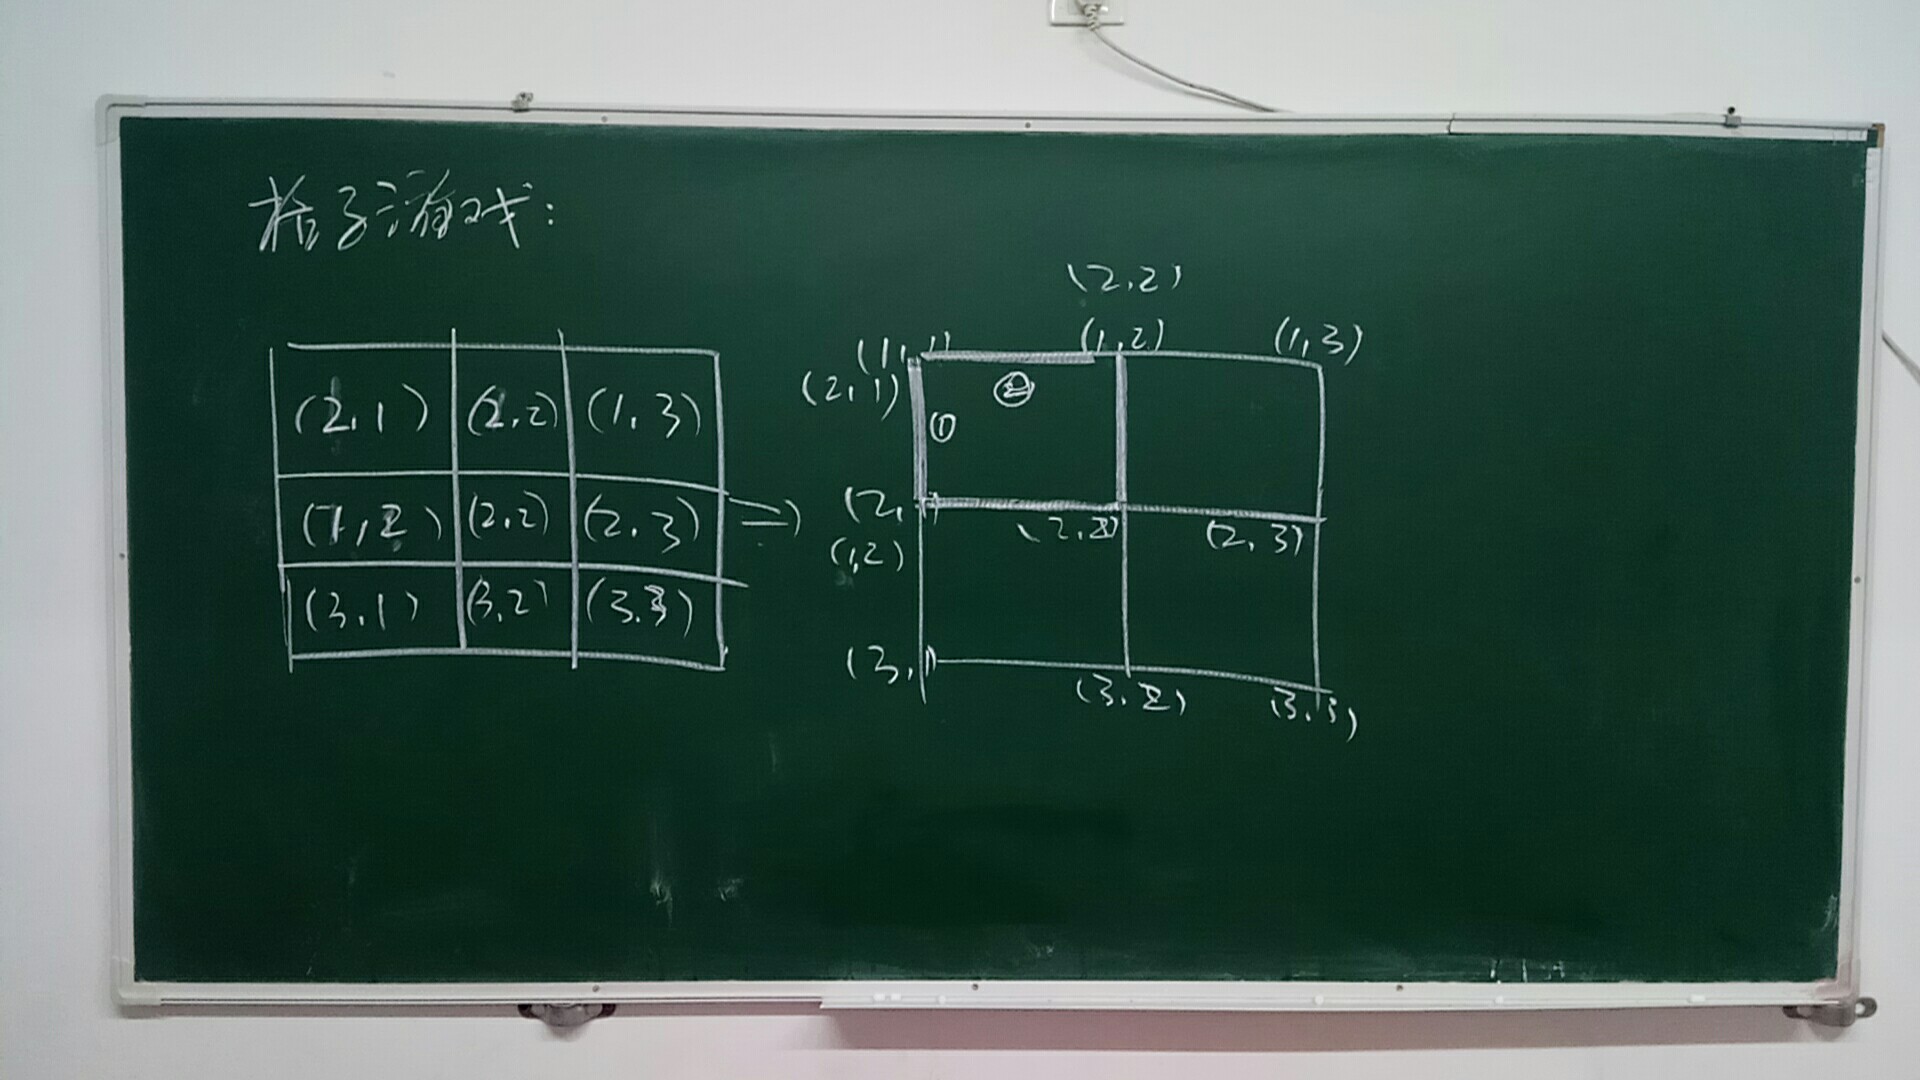 格子游戏:
(2,1) (2,2) (1,3)
(1,2) (2,2) (2,3)
(3,1) (3,2) (3,3)
⇒
(2,2)
(1,1) (1,2) (1,3)
(2,1) ① ②
(2,1) (2,2) (2,3)
(1,2)
(3,1) (3,2) (3,3)